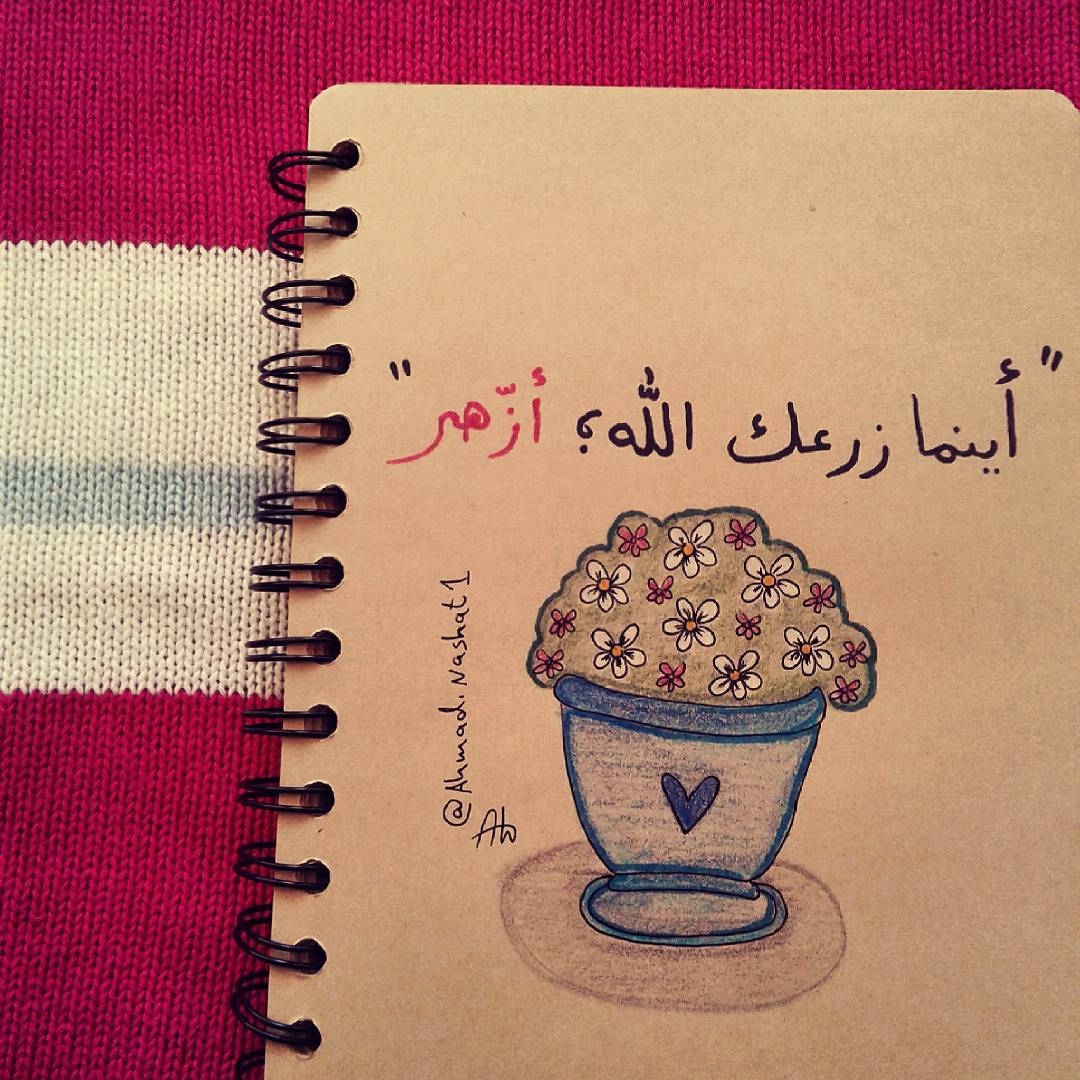 "أينما زرعك اللّٰه؟ أزّهر"
@Ahmadi.Nashat1